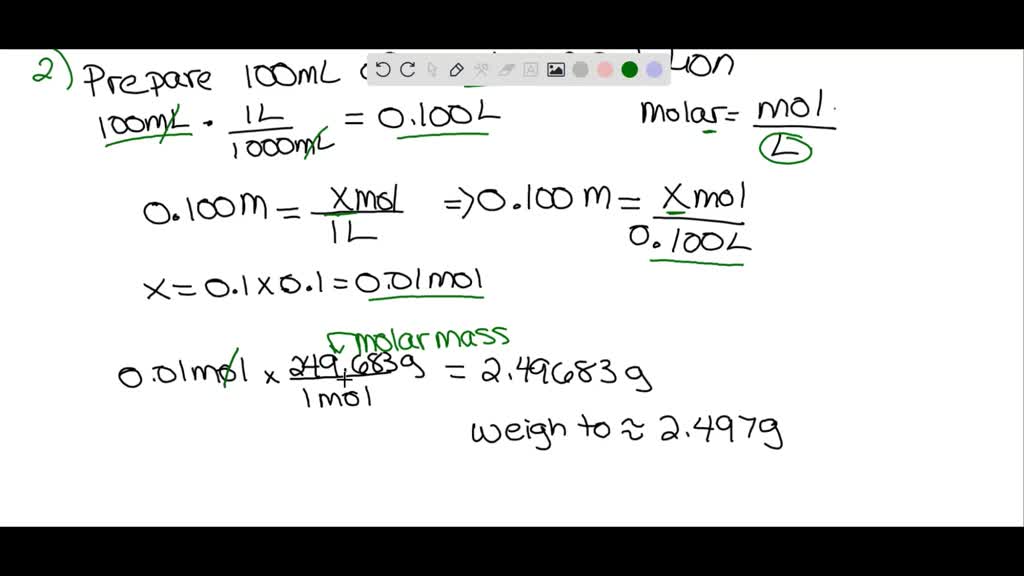 2) Prepare 100mL
100mL · 1L / 1000mL = 0.100L molar = mol / L
0.100M = Xmol / 1L => 0.100M = Xmol / 0.100L
X = 0.1 x 0.1 = 0.01mol
molar mass
0.01mol x 249.683g / 1mol = 2.49683g
weigh to ≈ 2.497g